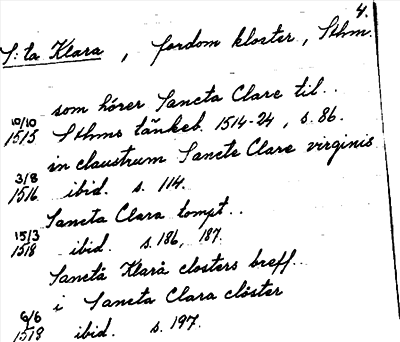 4.
S:ta Klara, fordom kloster, Sthm.
som hörer Sancta Clare til..
10/10 1515 Sthms tänkeb. 1514-24, s. 86.
in claustrum Sancte Clare virginis
3/8 1516 ibid. s. 114.
Sancta Clara tompt..
15/3 1518 ibid. s. 186, 187.
Sanctå Klarå closters breff..
i Sancta Clara clöster
6/6 1518 ibid. s. 197.